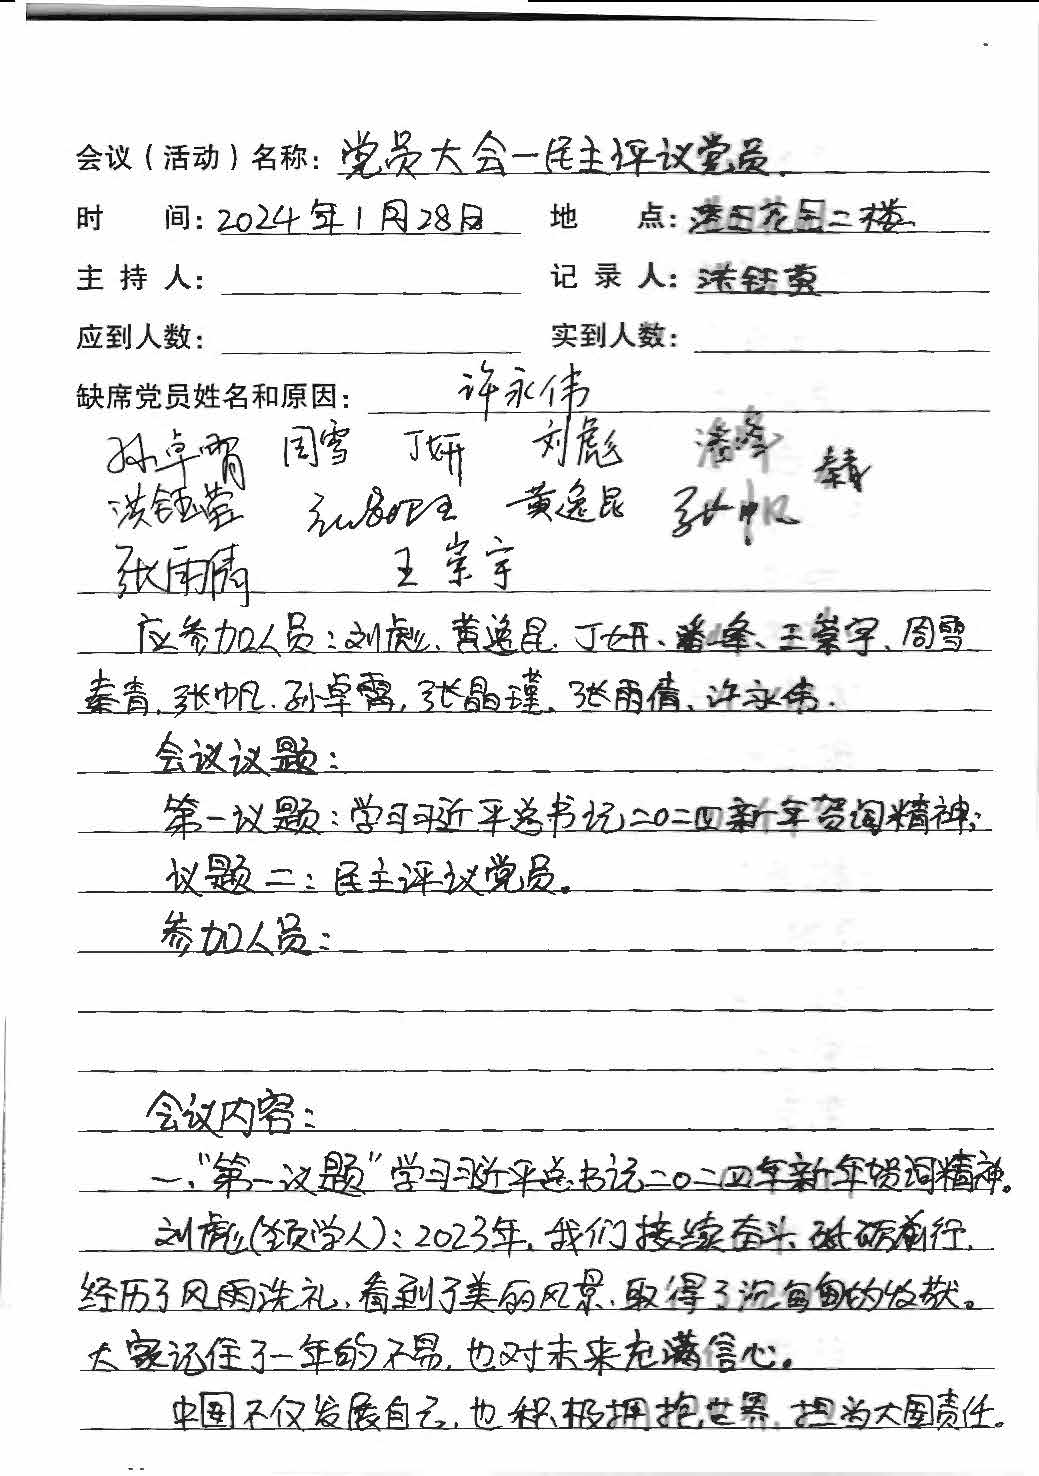 会议（活动）名称：党员大会一民主评议党员.
时 间：2024年1月28日 地 点：港田花园二楼
主 持 人： 记 录 人：洪钰莹
应到人数： 实到人数：
缺席党员姓名和原因： 许永伟
孙卓霄 周雪 丁妍 刘彪 潘峰 秦青
洪钰莹 黄逸昆 张帆
张雨倩 王崇宇
应参加人员：刘彪、黄逸昆、丁妍、潘峰、王崇宇、周雪
秦青、张帆、孙卓霄，张晶瑾、张雨倩、许永伟.
会议议题：
第一议题：学习习近平总书记二〇二四新年贺词精神；
议题二：民主评议党员。
参加人员：
会议内容：
一、“第一议题”学习习近平总书记二〇二四年新年贺词精神。
刘彪(领学人)：2023年，我们接续奋斗、砥砺前行，
经历了风雨洗礼、看到了美丽风景、取得了沉甸甸的收获。
大家记住了一年的不易，也对未来充满信心。
中国不仅发展自己，也积极拥抱世界，担当大国责任。